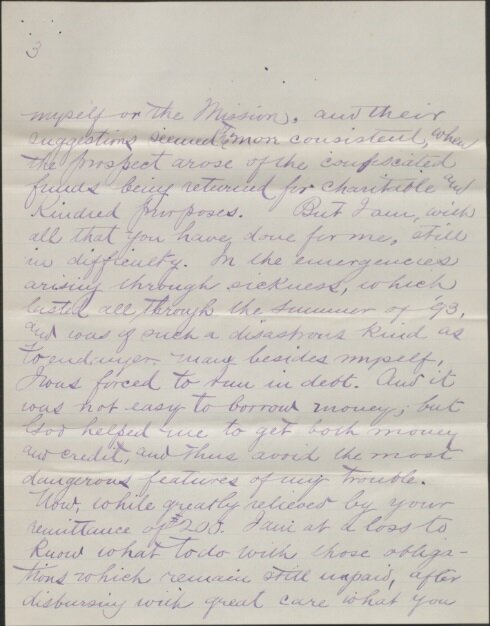 3
myself or the Mission, and their
suggestions seemed more consistent, when
the prospect arose of the confiscated
funds being returned for charitible and
Kindred purposes. But I am, with
all that you have done for me, still
in difficulty. In the emergencies
arising through sickness, which
lasted all through the summer of '93,
and was of such a disastrous kind as
to endanger many besides myself,
I was forced to run in debt. And it
was not easy to borrow money; but
God helped me to get both money
and credit, and thus avoid the most
dangerous features of my trouble.
Now, while greatly relieved by your
remittance of $200. I am at a loss to
Know what to do with those obliga-
tions which remain still unpaid, after
disbursing with great care what you